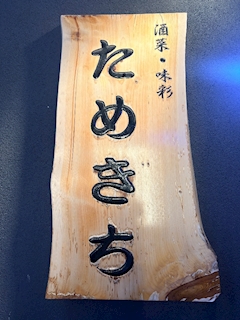 酒菜・味彩
ためきち